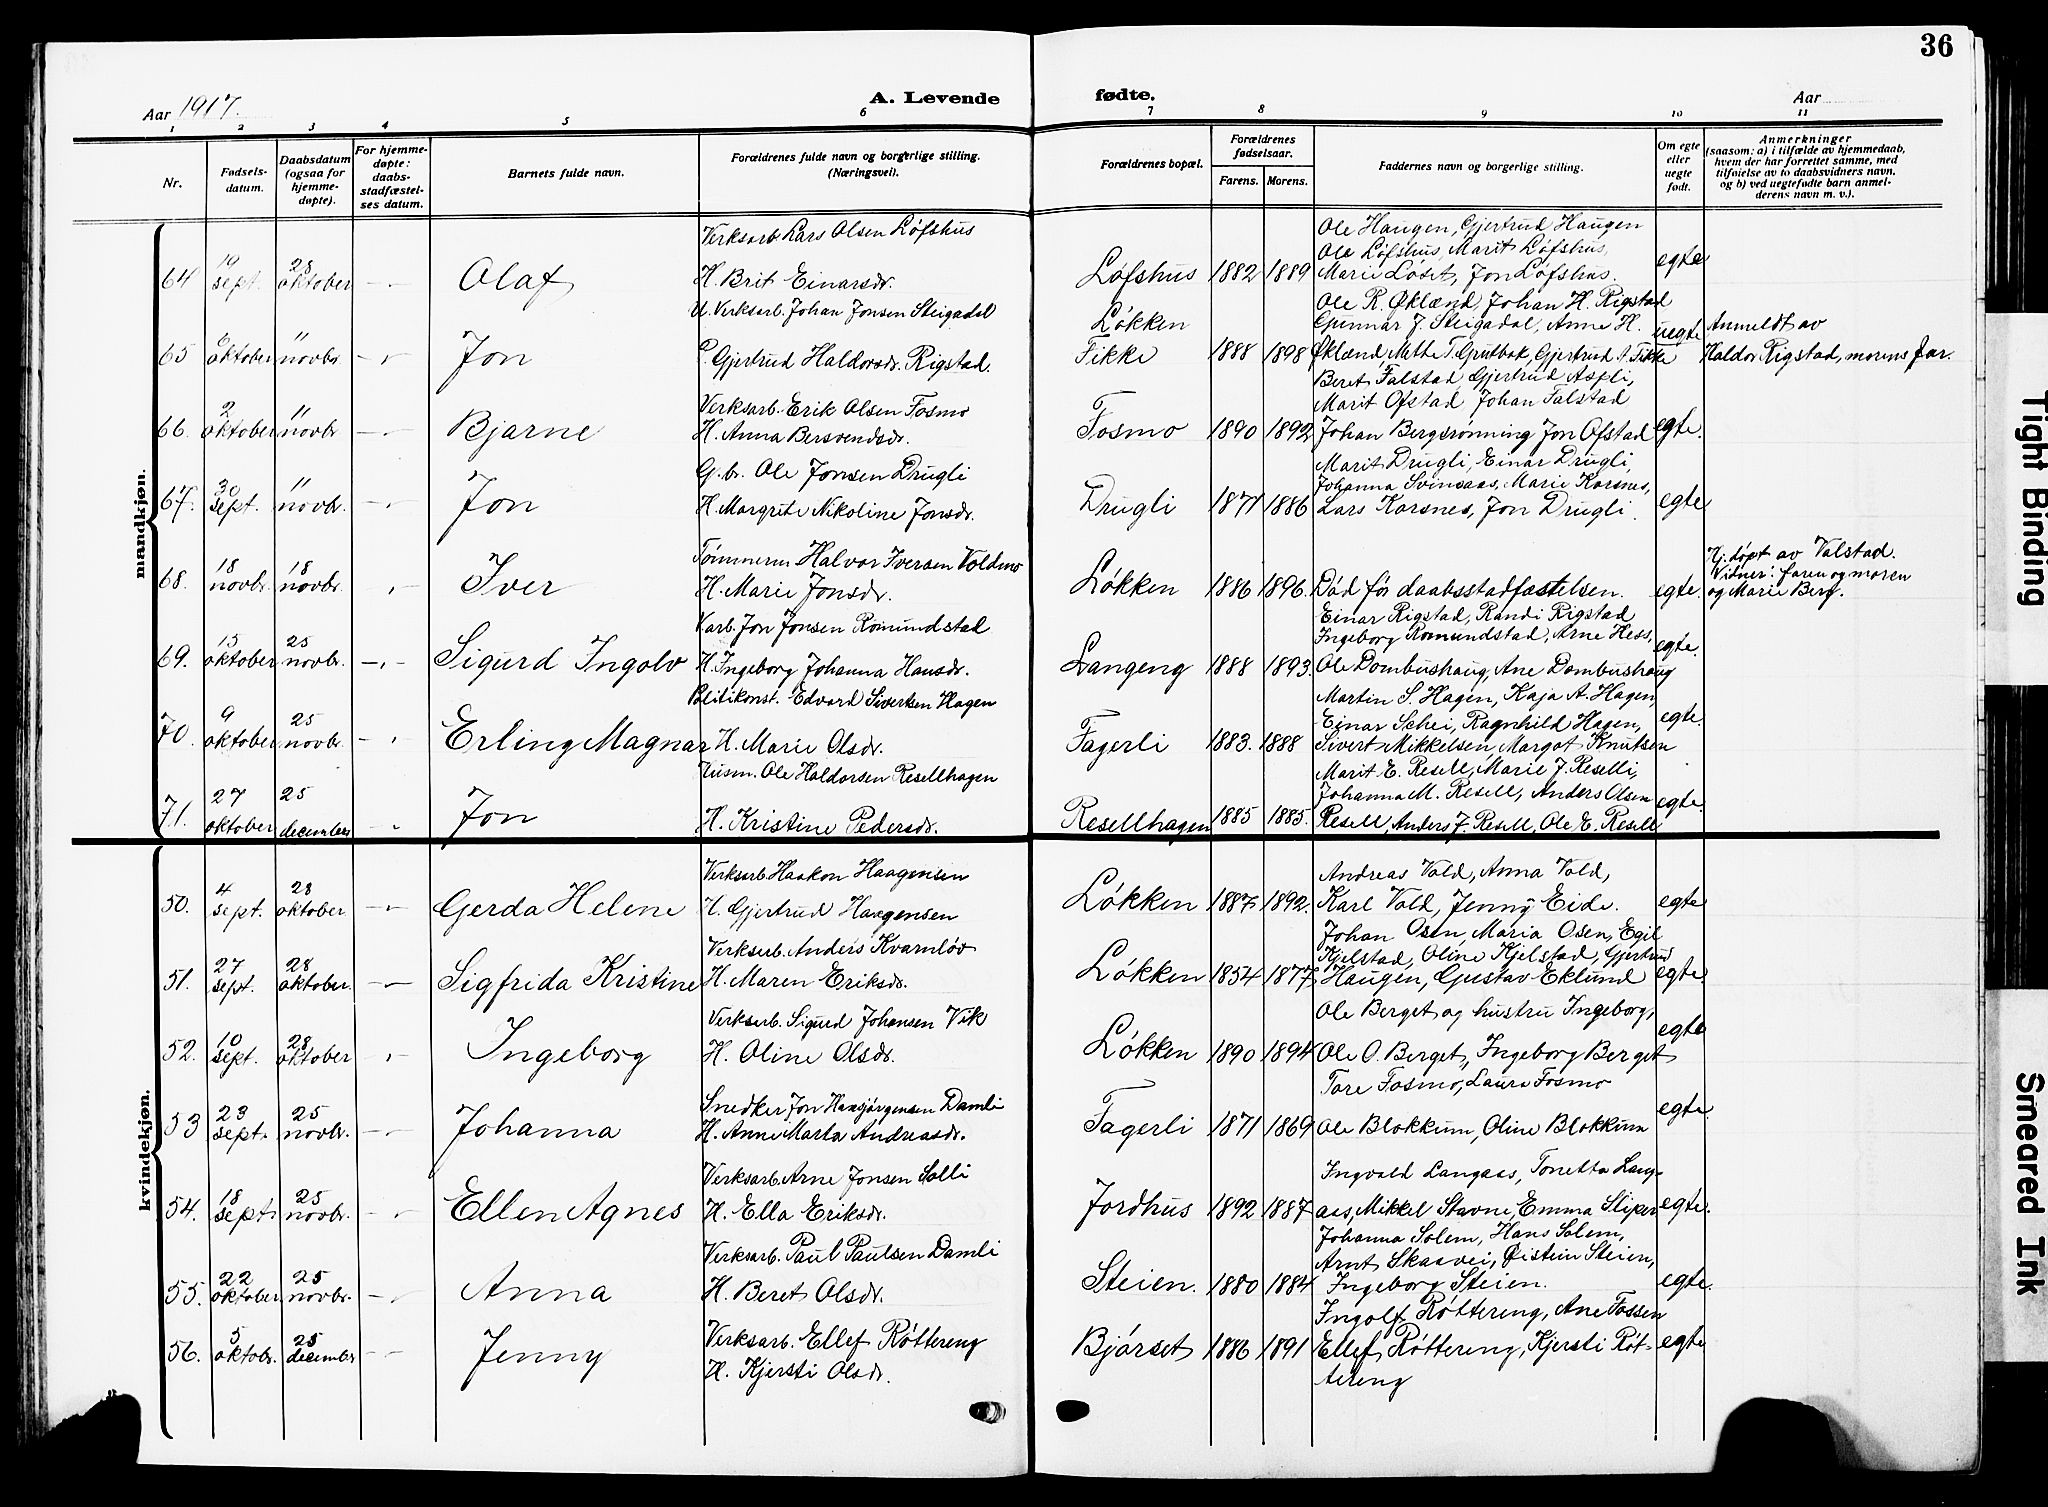 36
Aar 1917. A. Levende fødte. Aar
1 2 3 4 5 6 7 8 9 10 11
Nr. Fødsels-datum. Daabsdatum (ogsaa for hjemme-døpte). For hjemme-døpte: daabs-stadfæstel-ses datum. Barnets fulde navn. Forældrenes fulde navn og borgerlige stilling. (Næringsvei). Forældrenes bopæl. Forældrenes fødselsaar. Farens. Morens. Faddernes navn og borgerlige stilling. Om egte eller uegte født. Anmerkninger (saasom: a) i tilfælde av hjemmedaab, hvem der har forrettet samme, med tilføielse av to daabsvidners navn, og b) ved uegtefødte barn anmel-derens navn m. v.).
mandkjøn.
Verksarb. Lars Olsen Løfshus Ole Haugen, Gjertrud Haugen
Ole Løfshus, Marit Løfshus,
64 19 sept. 28 oktober - Olaf H. Brit Einarsdr. Løfshus 1882 1889 Marie Løset, Jon Løfshus. egte
U. Verksarb. Johan Jonsen Steigadal Løkken Ole R. Øklænd, Johan H. Rigstad
Gunnar J. Steigadal, Anne H. Anmeldt av
65 6 oktober 11 novbr - Jon P. Gjertrud Haldorsdr. Rigstad. Fikke 1888 1898 Øklænd, Mette T. Grutbak, Gjertrud A. Fikke uegte Haldor Rigstad, morens far.
Beret Falstad, Gjertrud Aspli,
Verksarb. Erik Olsen Fosmo Marit Ofstad, Johan Falstad
66. 2 oktober 11 novbr - Bjarne H. Anna Bersvendsdr. Fosmo 1890 1892 Johan Bergsrønning Jon Ofstad egte.
G.br. Ole Jonsen Drugli Marit Drugli, Einar Drugli,
Johanna Svinsaas, Marie Korsnes,
67. 30 sept. 11 novbr. - Jon H. Margrete Nikoline Jonsdr. Drugli 1871 1886 Lars Korsnes, Jon Drugli. egte
Tømmerm Halvor Iversen Voldmo Hj. døpt av Valstad.
Vidner: faren og moren
68. 18 novbr. 18 novbr. - Iver H. Marie Jonsdr. Løkken 1886 1896. Død før daabsstadfæstelsen. egte. og Marie Berg.
Varb. Jon Jonsen Romundstad Einar Rigstad, Randi Rigstad
Ingeborg Romundstad, Arne Hess,
69. 15 oktober 25 novbr. - Sigurd Ingolv H. Ingeborg Johanna Hansdr. Langeng 1888 1893. Ole Dombushaug, Ane Dombushaug egte.
Politikonst. Edvard Sivertsen Hagen Martin S. Hagen, Kaja A. Hagen,
Einar Schei, Ragnhild Hagen,
70. 9 oktober 25 novbr. - Erling Magnar H. Marie Olsdr. Fagerli 1883. 1888 Sivert Mikkelsen, Margot Knutsen egte.
Husm. Ole Haldorsen Resellhagen Marit E. Resell, Marie J. Reselli,
Johanna M. Resell, Anders Olsen
71. 27 oktober 25 december - Jon H. Kristine Pedersdr. Resellhagen 1885 1885. Resell, Anders J. Resell, Ole E. Resell egte.
kvindekjøn.
Verksarb. Haakon Haagensen Andreas Vold, Anna Vold,
50. 4 sept. 28 oktober - Gerda Helene H. Gjertrud Haagensen Løkken 1887. 1892. Karl Vold, Jenny Eide. egte
Johan Osen, Maria Osen, Egil
Verksarb. Anders Kvarnløv Kjelstad, Oline Kjelstad, Gjertrud
51. 27 sept. 28 oktober. - Sigfrida Kristine H. Maren Eriksdr. Løkken 1854 1877. Haugen, Gustav Eklund egte.
Verksarb. Sigurd Johansen Vik Ole Berget og hustru Ingeborg,
52. 10 sept. 28 oktober - Ingeborg H. Oline Olsdr. Løkken 1890 1894 Ole O. Berget, Ingeborg Berget egte
Tore Fosmo, Laura Fosmo
Snedker Jon Hansjørgensen Damli
53 23 sept. 25 novbr. - Johanna H. Anne Marta Andreasdr. Fagerli 1871 1869 Ole Blokkum, Oline Blokkum egte.
Verksarb. Arne Jonsen Solli Ingvald Langaas, Tonetta Lang-
54. 18 sept. 25 novbr. - Ellen Agnes H. Ella Eriksdr. Jordhus 1892 1887 aas, Mikkel Stavne, Emma Sliper egte.
Johanna Solem, Hans Solem,
Verksarb. Paul Paulsen Damli Arnt Skaavei, Øistein Steien,
55. 22 oktober 25 novbr. - Anna H. Beret Olsdr. Steien. 1880 1884 Ingeborg Steien. egte.
Ingolf Røttereng, Ane Tossen
56. 5 oktobr. 25 december - Jenny Verksarb. Ellef Røttereng Bjørset 1886 1891 Ellef Røttereng, Kjersti Røt- egte
H. Kjersti Olsdr. tereng
Tight Binding
Smeared Ink